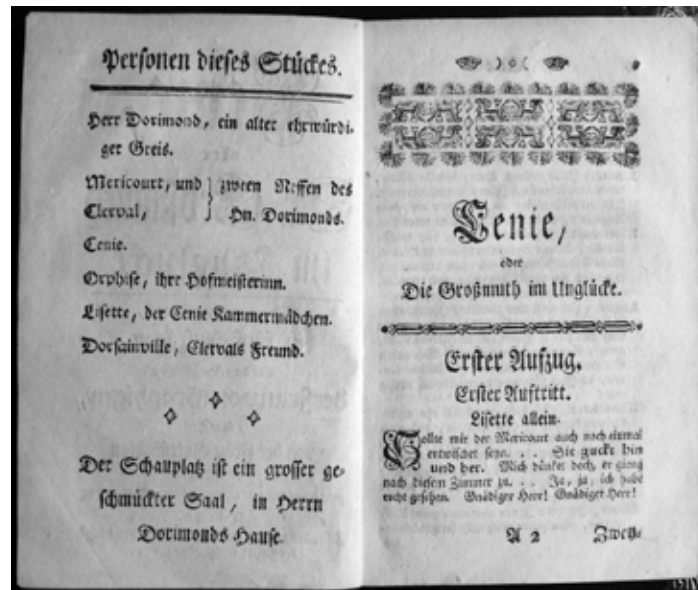 Personen dieses Stückes.
Herr Dorimond, ein alter ehrwürdi-
ger Greis.
Mericourt, und } zween Neffen des
Clerval, } Hn. Dorimonds.
Cenie.
Orphise, ihre Hofmeisterinn.
Lisette, der Cenie Kammermädchen.
Dorsainville, Clervals Freund.
Der Schauplatz ist ein grosser ge-
schmückter Saal, in Herrn
Dorimonds Hause.
) o (
Cenie,
oder
Die Großmuth im Unglücke.
Erster Aufzug.
Erster Auftritt.
Lisette allein.
Sollte mir der Mericourt auch noch einmal
entwischet seyn. . . Sie guckt hin
und her. Mich dünket doch, er gieng
nach diesem Zimmer zu. . . Ja, ja, ich habe
recht gesehen. Gnädiger Herr! Gnädiger Herr!
A 2 Zwey-